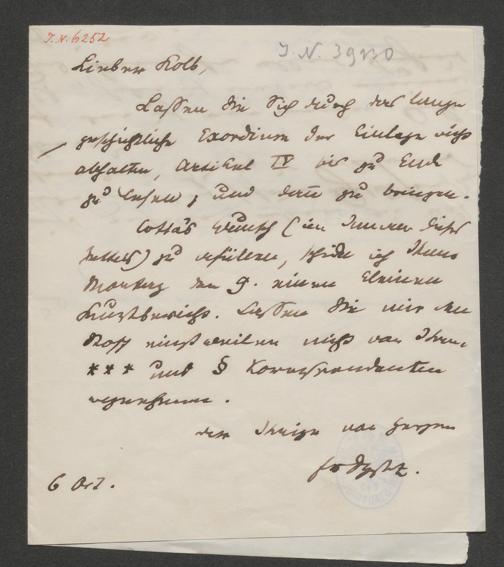 I.N. 6252
I. N. 39230
Lieber Kolb,
Lassen Sie Sich durch das lange
geschichtliche Exordium der Einlage nicht
abhalten, Artikel IV bis zu Ende
zu lesen, und dann zu bringen.
Cotta's Wunsch (im Innern dieses
Blattes) zu erfüllen, schicke ich Ihnen
Montag den 9. einen kleinen
Kunstbericht. Lassen Sie mir den
Stoff einstweilen nicht von Ihren
*** und § Korrespondenten
wegnehmen.
der Ihrige von Herzen
6 Oct.